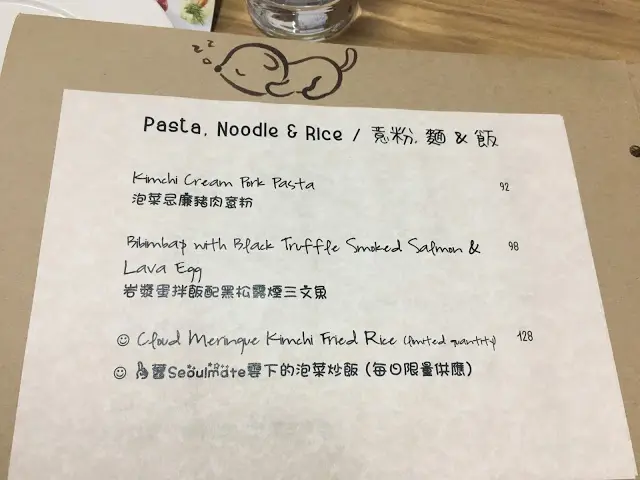 zzz
Pasta, Noodle & Rice / 意粉, 麵 & 飯
Kimchi Cream Pork Pasta 92
泡菜忌廉豬肉意粉
Bibimbap with Black Truffle Smoked Salmon & 98
Lava Egg
岩漿蛋拌飯配黑松露煙三文魚
Cloud Meringue Kimchi Fried Rice (limited quantity) 128
醬Seoulmate雲下的泡菜炒飯 (每日限量供應)